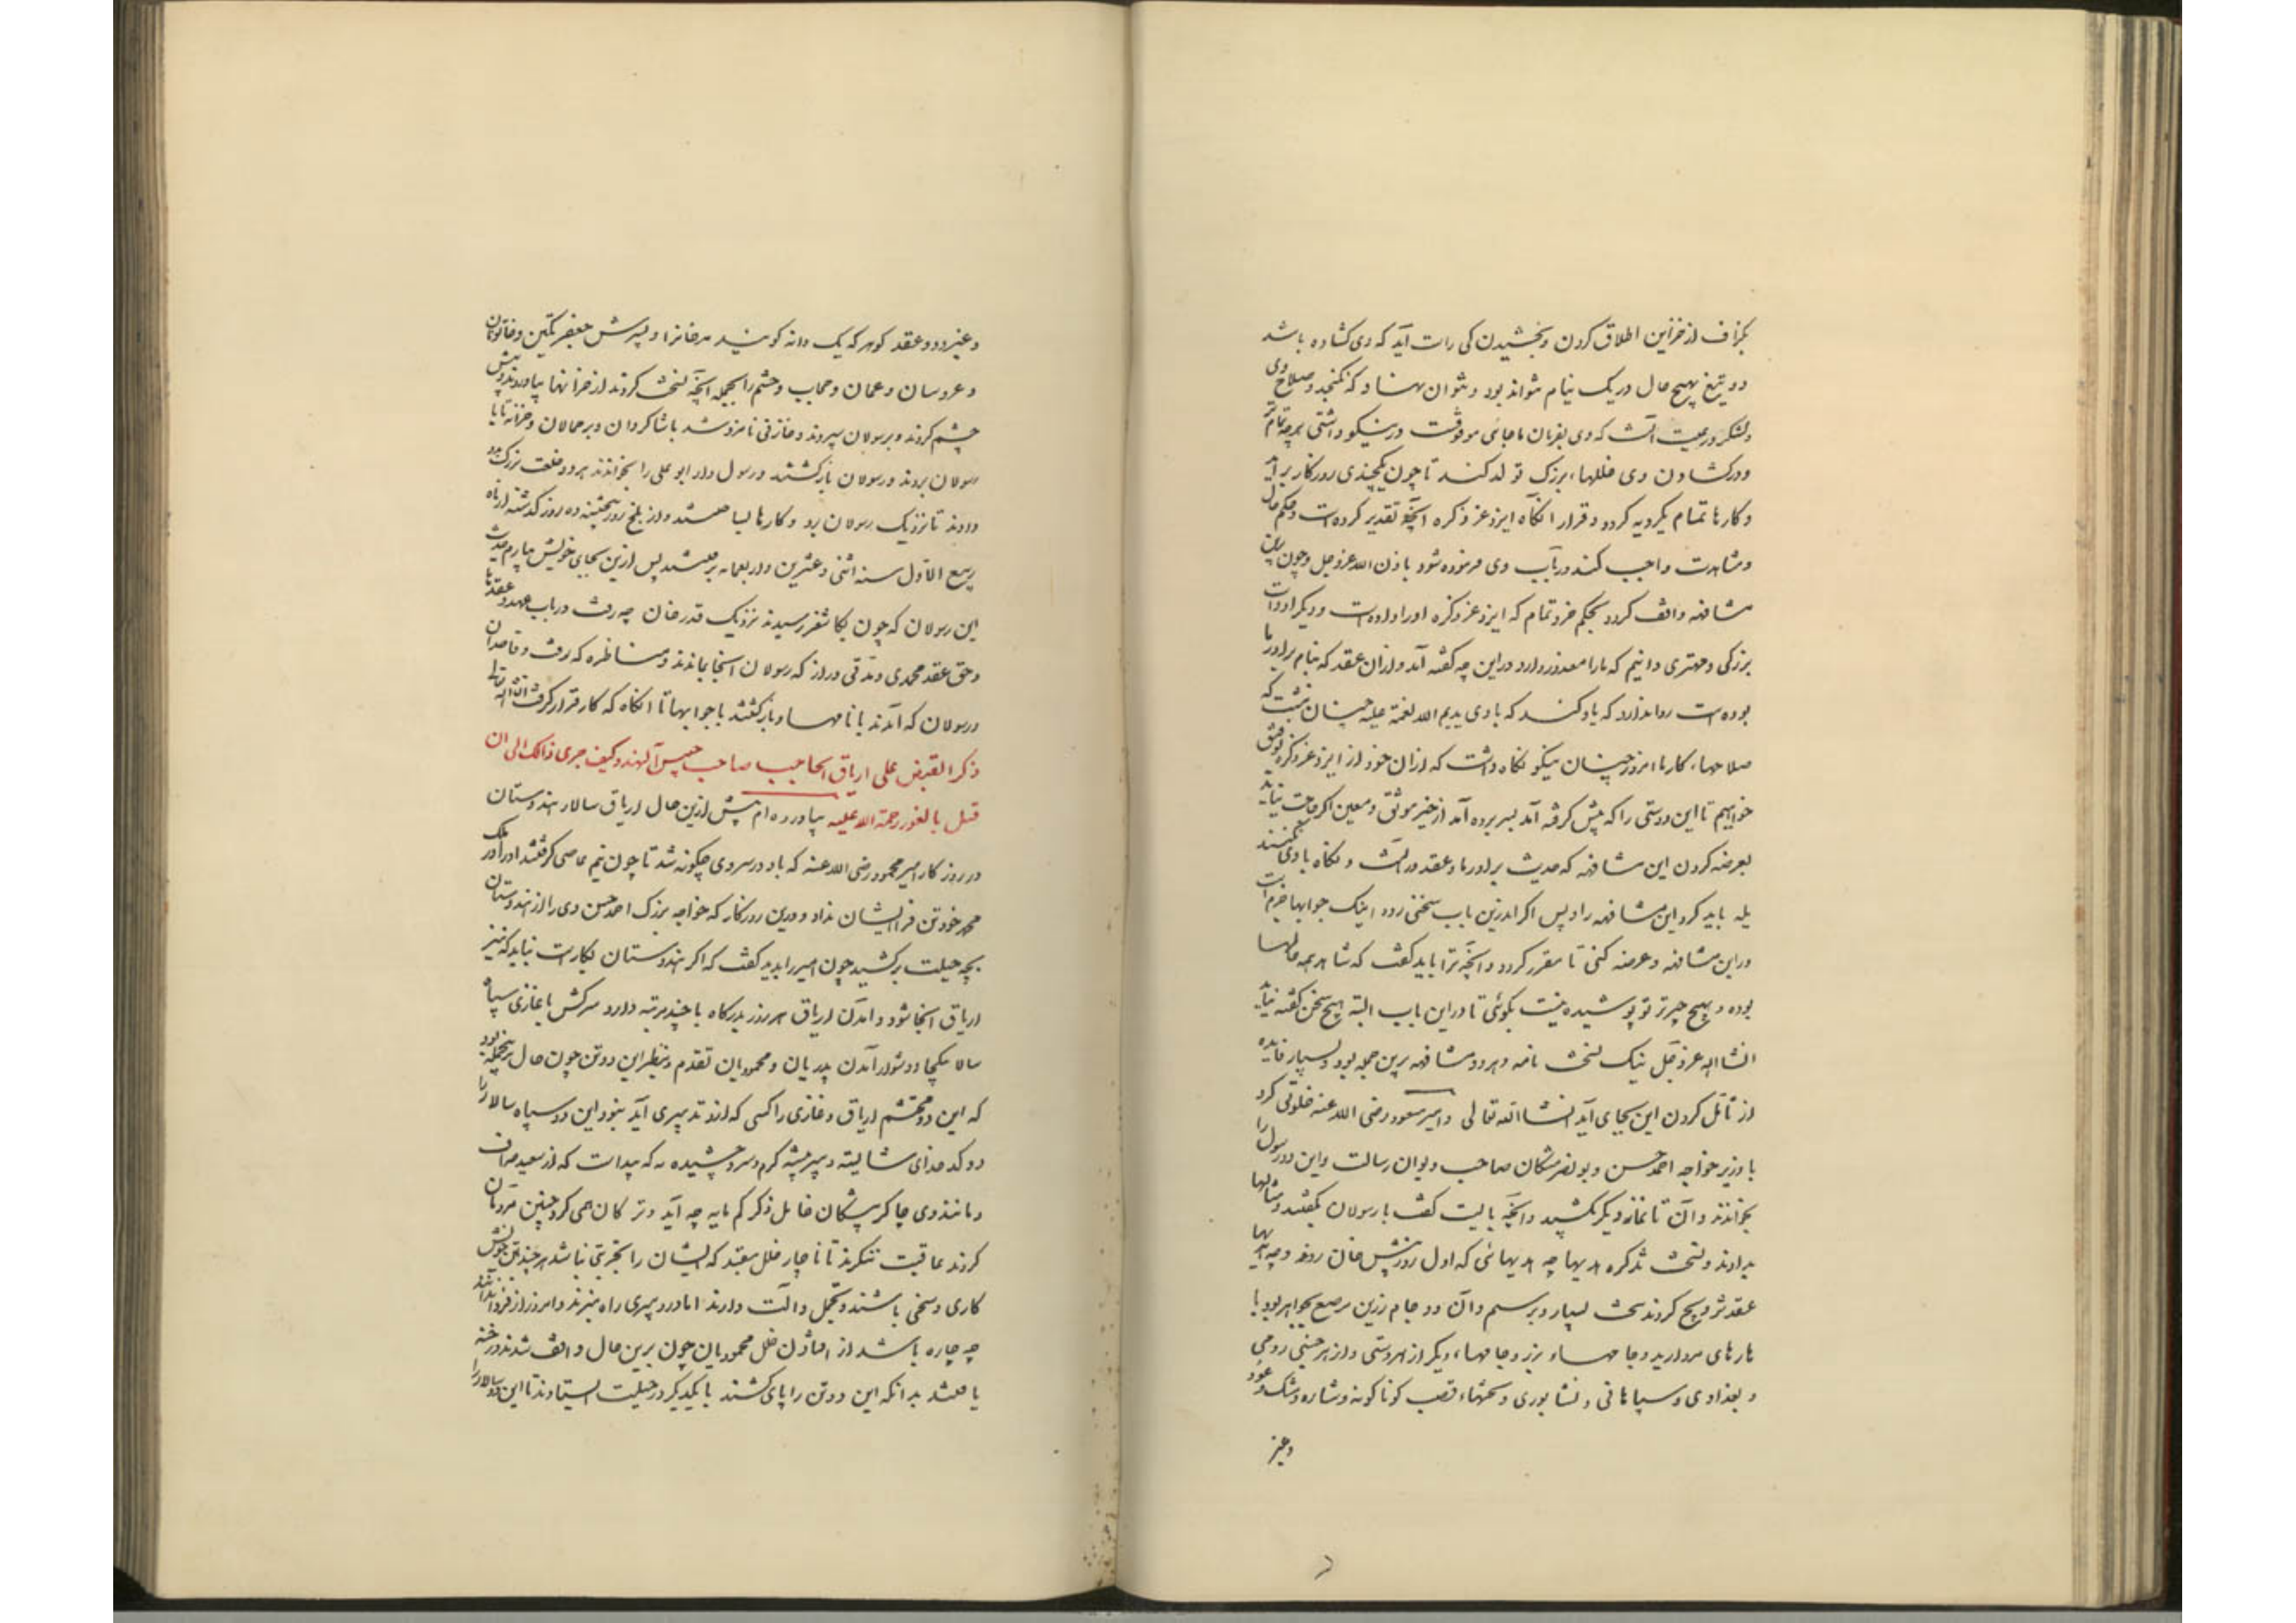 بگزاف از خزاین اطلاق کردن و بخشیدن کی راست آید که وی گشاده باشد
دو تیغ بهیچ حال در یک نیام نتواند بود و نتوان نهاد که نگنجد و صلاح وی
و لشکر و رعیت آنست که وی بفرمان ما جائی موقوفست در نیکو داشتی هر چه تمامتر
و در گشادن وی خللهاء بزرگ تولد کند تا چون یکچندی روزگار بر آید
و کارها تمام یکرویه گردد و قرار انگاه ایزد عز ذکره آنچه تقدیر کرده است و حکم حال
و مشاهدت واجب کند در باب وی فرموده شود باذن الله عز و جل و چون برین
مشافهه واقف گردد بحکم خرد تمام که ایزد عز و ذکره او را داده است و دیگر ادوات
بزرگی و مهتری دانیم که ما را معذور دارد در این چه گفته آمد و ازان عقد که بنام برادر ما
بوده است روا ندارد که یاد کند که با وی یدیم الله نعمة علیه چنان نبشت که
صلاحهاء کار ما امروز چنان نیکو نگاه داشت که ازان خود از ایزد عز و ذکره توفیق
خواهیم تا این دوستی را که پیش گرفته آمد بسر برده آمد از خیر موثق و معین اگر حاجت نیاید
بعرضه کردن این مشافهه که حدیث برادر ما و عقد در آنست و نگاه با وی نکنند
یله باید کرد این مشافهه را و پس اگر اندرین باب سخنی رود اینک جوابها جزم است
در این مشافهه و عرضه کنی تا مقرر گردد و آنچه ترا باید گفت که شاهد همه حالها
بوده و هیچ چیز بر تو پوشیده نیست بگوئی تا در این باب البته هیچ سخن گفته نیاید
انشا الله عز و جل نیک نسخت نامه و هر دو مشافهه برین جمله بود و بسیار فایده
از تأمل کردن این بجای آید انشا الله تعالی و امیر مسعود رضی الله عنه خلوتی کرد
با وزیر خواجه احمد حسن و بو نصر مشکان صاحب دیوان رسالت و این دو رسول را
بخواندند و آن تا نماز دیگر بکشید و آنچه بایست گفت با رسولان بگفتند و مثالها
بدادند و نسخت تذکره هدیها چه هدیهائی که اول روز پیش خان روند و چه هدیها
عقد تزویج کردند سخت بسیار و برسم و آن دو جام زرین مرصع بجواهر بود با
هارهای مروارید و جامهاء بزر و جامهاء دیگر از هر دستی و از هر جنسی رومی
و بغدادی و سپاهانی و نشابوری و تختهاء قصب گوناگونه و شاره و مشک و عود
وعنبر
و عنبر و دو عقد گوهر که یک دانه گویند هر خانرا و پسرش بغر تکین و خاتونان
و عروسان و عمان و حجاب و حشم را بجمله آنچه نسخت کردند از خزانها بیاوردند و پیش
چشم کردند و برسولان سپردند و خازنی نامزد شد با شاگردان و بر حمالان و خزانه تا با
رسولان بروند و رسولان بازگشتند و رسول دار ابو علی را بخواندند هر دو خلعت بزرگ بدو
دادند تا نزدیک رسولان برد و کارها بساختند و از بلخ روز پنجشنبه ده روز گذشته از ماه
ربیع الاول سنه اثنی و عشرین و اربعمایه برفتند پس ازین بجای خویش بیارم حدیث
این رسولان که چون بکاشغر رسیدند نزدیک قدر خان چه رفت در باب عهد و عقدها
و حق عقد محمدی و مدتی دراز که رسولان آنجا بماندند و مناظره که رفت و قاصدان
و رسولان که آمدند با نامها و بازگشتند با جوابها تا انگاه که کار قرار گرفت انشا الله تعالی
ذکر القبض علی اریاق الحاجب صاحب جیش آلهند و کیف جری ذالک الی ان
قتل بالغور رحمة الله علیه بیاورده ام پیش ازین حال اریاق سالار هندوستان
در روزگار امیر محمود رضی الله عنه که باد در سر وی چگونه شد تا چون نیم عاصی گرفتند او را و در ملک
محمد خود تن فرا ایشان نداد و درین روزگار که خواجه بزرگ احمد حسن وی را از هندوستان
بچه حیلت برکشید چون امیر را بدید گفت که اگر هندوستان بکارست نباید که نیز
اریاق آنجا شود و آمدن اریاق هر روز بدرگاه با چند مرتبه دارد سرکش با غازی سپاه
سالار بیکجا و دشوار آمدن پدریان و محمودیان تقدم و بنظر این دو تن چون حال برینجمله بود
که این دو محتشم اریاق و غازی را کسی که ازو تدبیری آید نبود این دو سپاه سالار را
دو کدخدای شایسته و دبیر پیشه گرم و سرد چشیده نه که پیداست که از سعید صراف
و مانند وی چاکر پیشگان خامل ذکر کم مایه چه آید و ترکان همی گرد چنین مردمان
گردند عاقبت ننگرند تا ناچار خلل بیفتد که ایشان را تجربتی نباشد هر چند بتن خویش
کاری و سخی باشند و تجمل و آلت دارند اما در دبیری راه نبرند و امروز از فردا ندانند
چه چاره باشد از افتادن خلل محمودیان چون برین حال واقف شدند و رخنه
یافتند بدانکه این دو تن را پای کشند با یکدیگر در حیلت ایستادند تا این دو سالار را